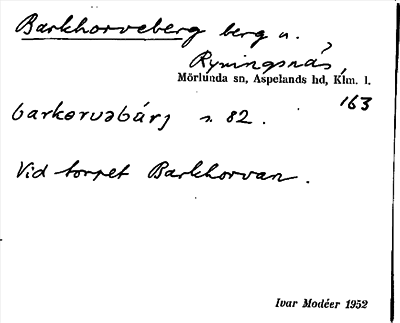 Barkhorveberg berg n.
Ryningsnäs,
Mörlunda sn, Aspelands hd, Klm. l.
163
barkərvəbárj s. 82.
Vid torpet Barkhorvan.
Ivar Modéer 1952